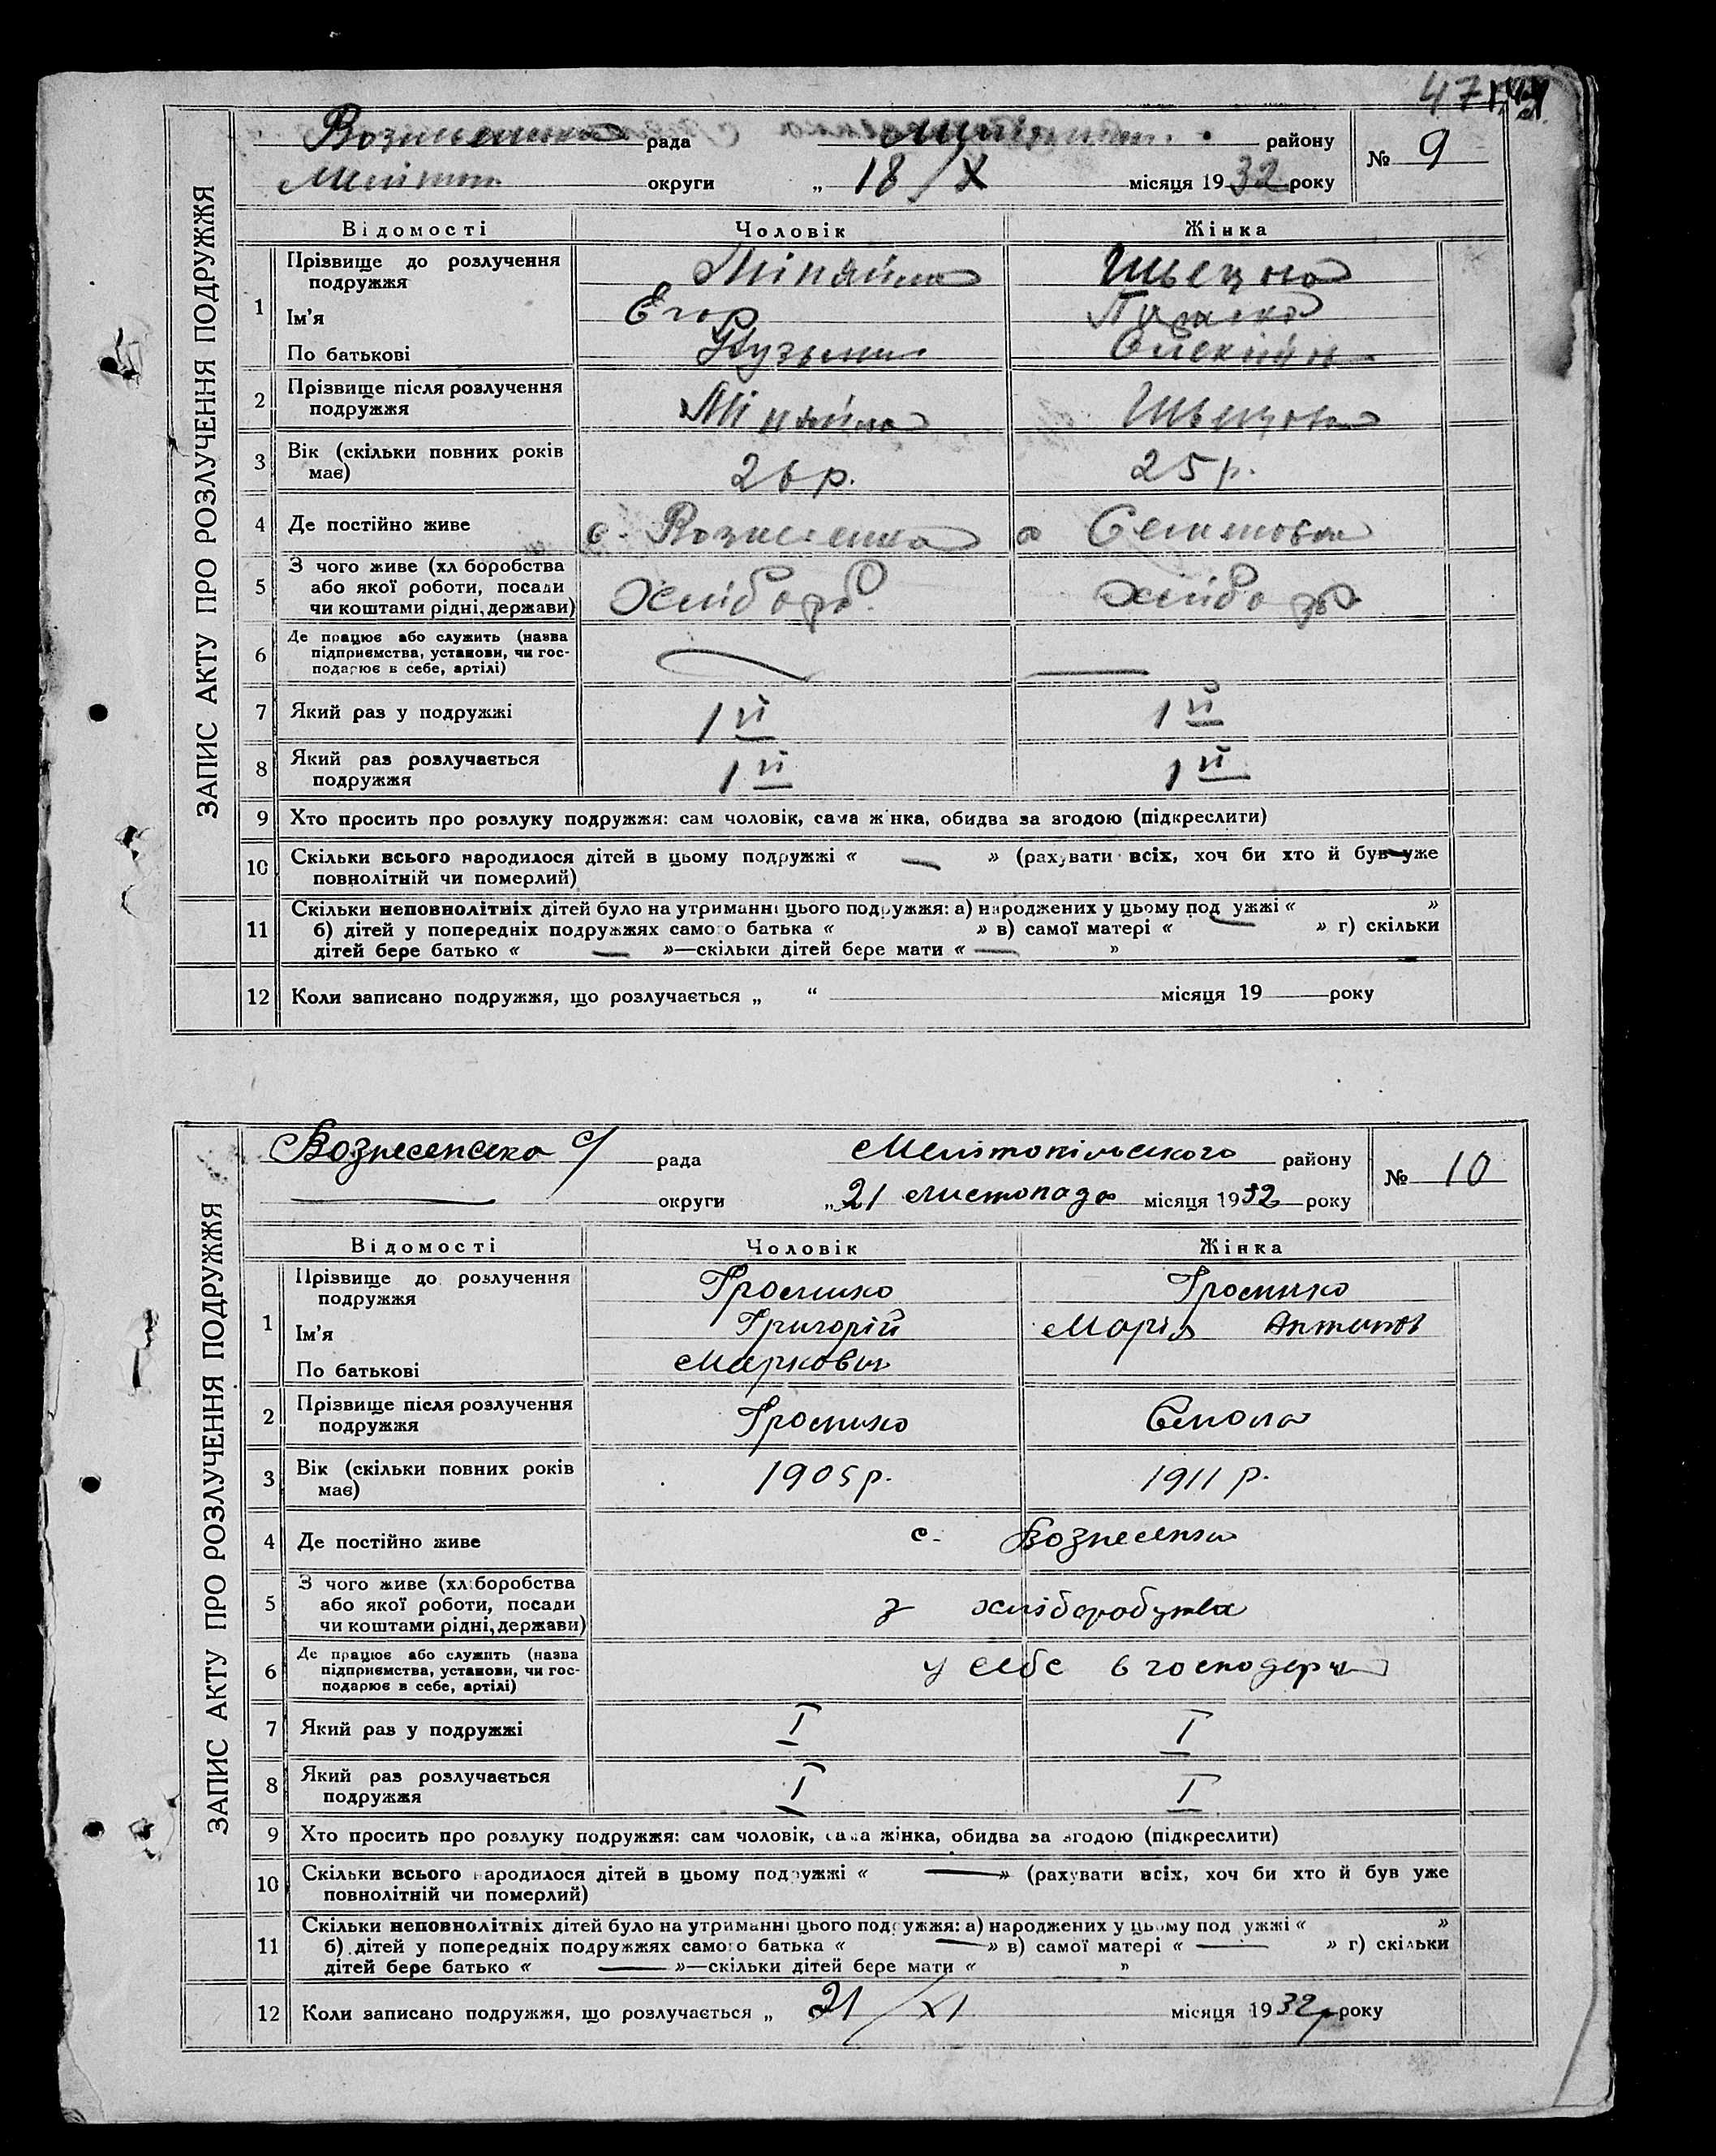 47
ЗАПИС АКТУ ПРО РОЗЛУЧЕННЯ ПОДРУЖЖЯ
рада району № 9
округи „ 18/X місяця 1932 року
Відомості Чоловік Жінка
1 Прізвище до розлучення подружжя Мінайло
Ім'я Егор
По батькові Кузьмич
2 Прізвище після розлучення подружжя Мінайло
3 Вік (скільки повних років має) 26 р. 25 р.
4 Де постійно живе с. Вознесенка
5 З чого живе (хл боробства або якої роботи, посади чи коштами рідні, держави) Хлібороб. Хлібороб
6 Де працює або служить (назва підприємства, установи, чи господарює в себе, артілі) — —
7 Який раз у подружжі 1й 1й
8 Який раз розлучається подружжя 1й 1й
9 Хто просить про розлуку подружжя: сам чоловік, сама жінка, обидва за згодою (підкреслити)
10 Скільки всього народилося дітей в цьому подружжі « — » (рахувати всіх, хоч би хто й був уже
повнолітній чи померлий)
11 Скільки неповнолітніх дітей було на утриманні цього подружжя: а) народжених у цьому под ужжі « — »
б) дітей у попередніх подружжях самого батька « » в) самої матері « » г) скільки
дітей бере батько « — »—скільки дітей бере мати « — »
12 Коли записано подружжя, що розлучається „ “ місяця 19 року
ЗАПИС АКТУ ПРО РОЗЛУЧЕННЯ ПОДРУЖЖЯ
Вознесенська с/ рада Мелітопільського району № 10
— округи „ 21 листопада місяця 1932 року
Відомості Чоловік Жінка
1 Прізвище до розлучення подружжя
Ім'я Григорій Марія
По батькові Маркович
2 Прізвище після розлучення подружжя
3 Вік (скільки повних років має) 1905 р. 1911 р.
4 Де постійно живе с. Вознесенка
5 З чого живе (хл боробства або якої роботи, посади чи коштами рідні, держави) з хліборобства
6 Де працює або служить (назва підприємства, установи, чи господарює в себе, артілі) у себе в господарч
7 Який раз у подружжі I I
8 Який раз розлучається подружжя I I
9 Хто просить про розлуку подружжя: сам чоловік, сама жінка, обидва за згодою (підкреслити)
10 Скільки всього народилося дітей в цьому подружжі « — » (рахувати всіх, хоч би хто й був уже
повнолітній чи померлий)
11 Скільки неповнолітніх дітей було на утриманні цього подружжя: а) народжених у цьому под ужжі « »
б) дітей у попередніх подружжях самого батька « — » в) самої матері « — » г) скільки
дітей бере батько « — »—скільки дітей бере мати « »
12 Коли записано подружжя, що розлучається „ 21/XI місяця 1932 року